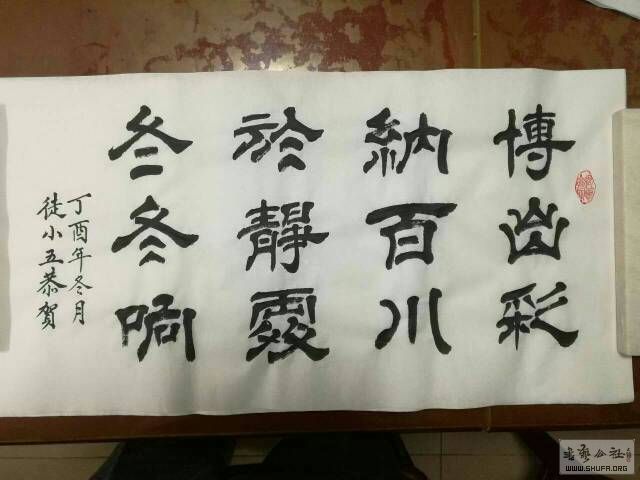 博出彩
納百川
於靜
冬冬响
丁酉年冬月
徒小五恭賀
书艺公社
WWW.SHUFA.ORG